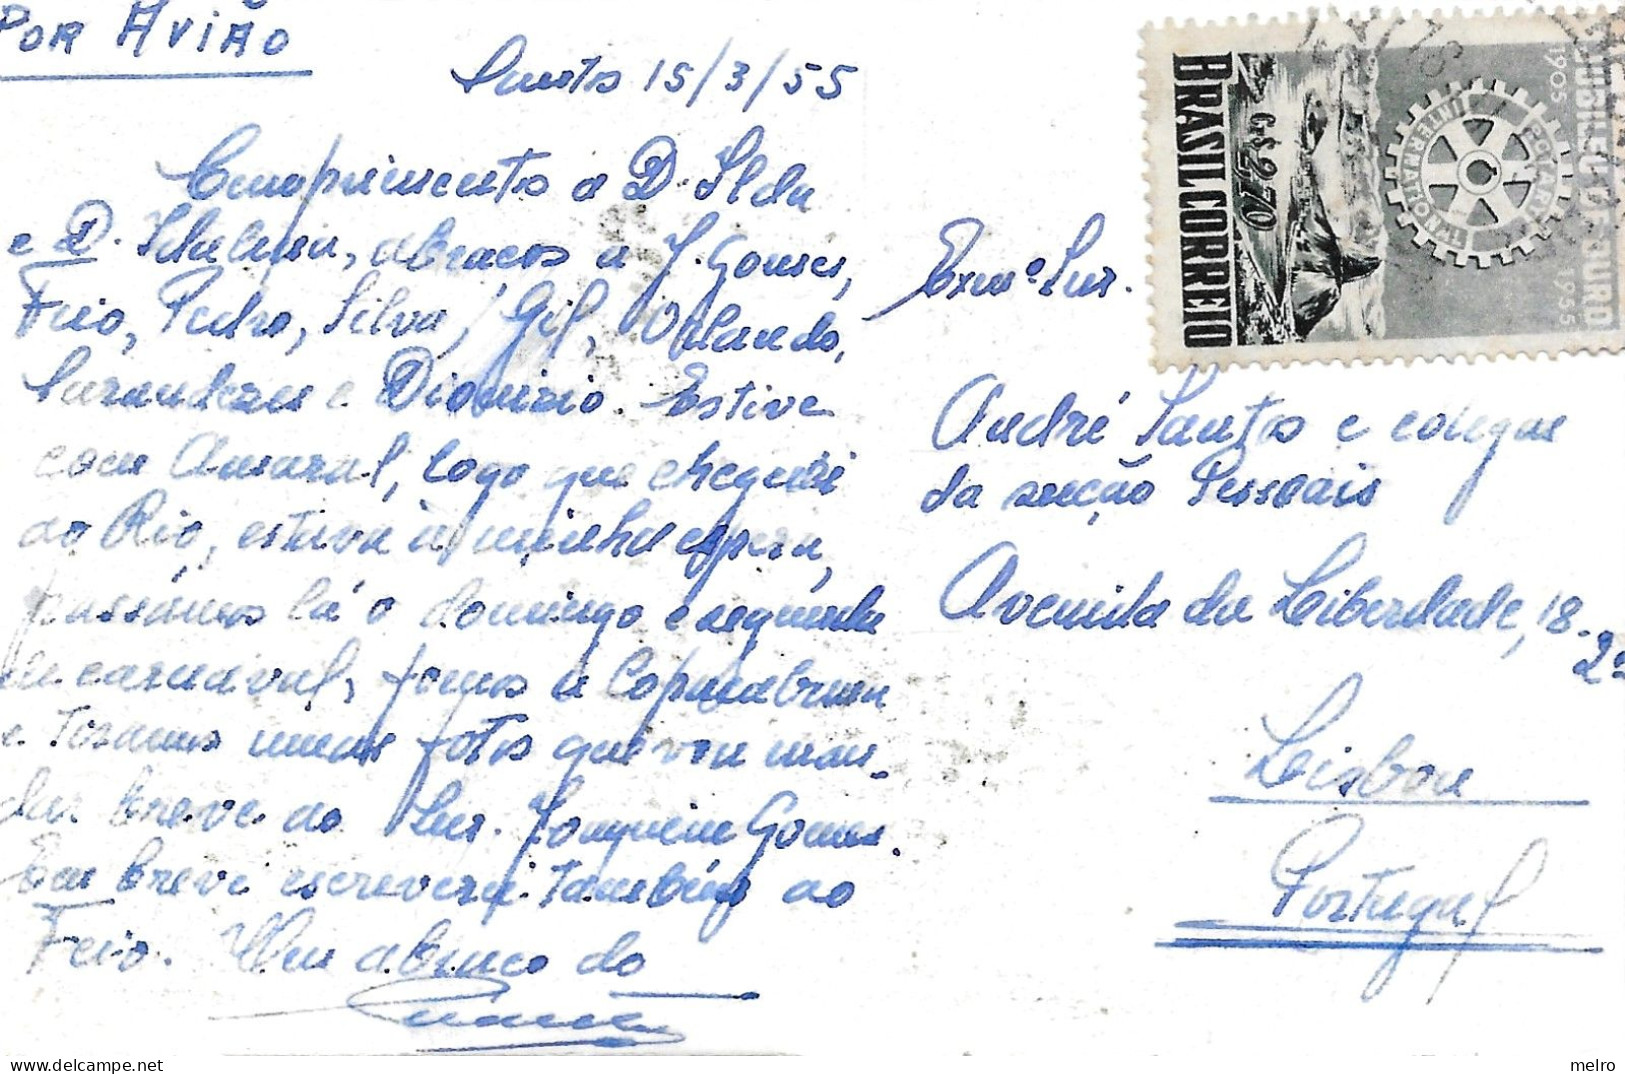 POR AVIÃO
Santos 15/3/55
Cumprimentos a D. Ilda
e D. abraços a J. Gomes,
Feio, Pedro, Silva, Gil, Orlando,
e Dionizio. Estive
com Amaral, logo que cheguei
ao Rio, estava à minha espera,
passámos lá o domingo e segunda
de carnaval, fomos a Copacabana
e tiramos umas fotos que vou man-
dar breve ao Snr. Joaquim Gomes.
Em breve escreverei também ao
Feio. Um abraço do
Exmº Snr.
André Santos e colegas
da secção Pessoais
Avenida da Liberdade, 18-
2º
Lisboa
Portugal
BRASIL CORREIO
Cr$ 2,70
ROTARY INTERNATIONAL
1905 JUBILEU DE OURO 1955
melro